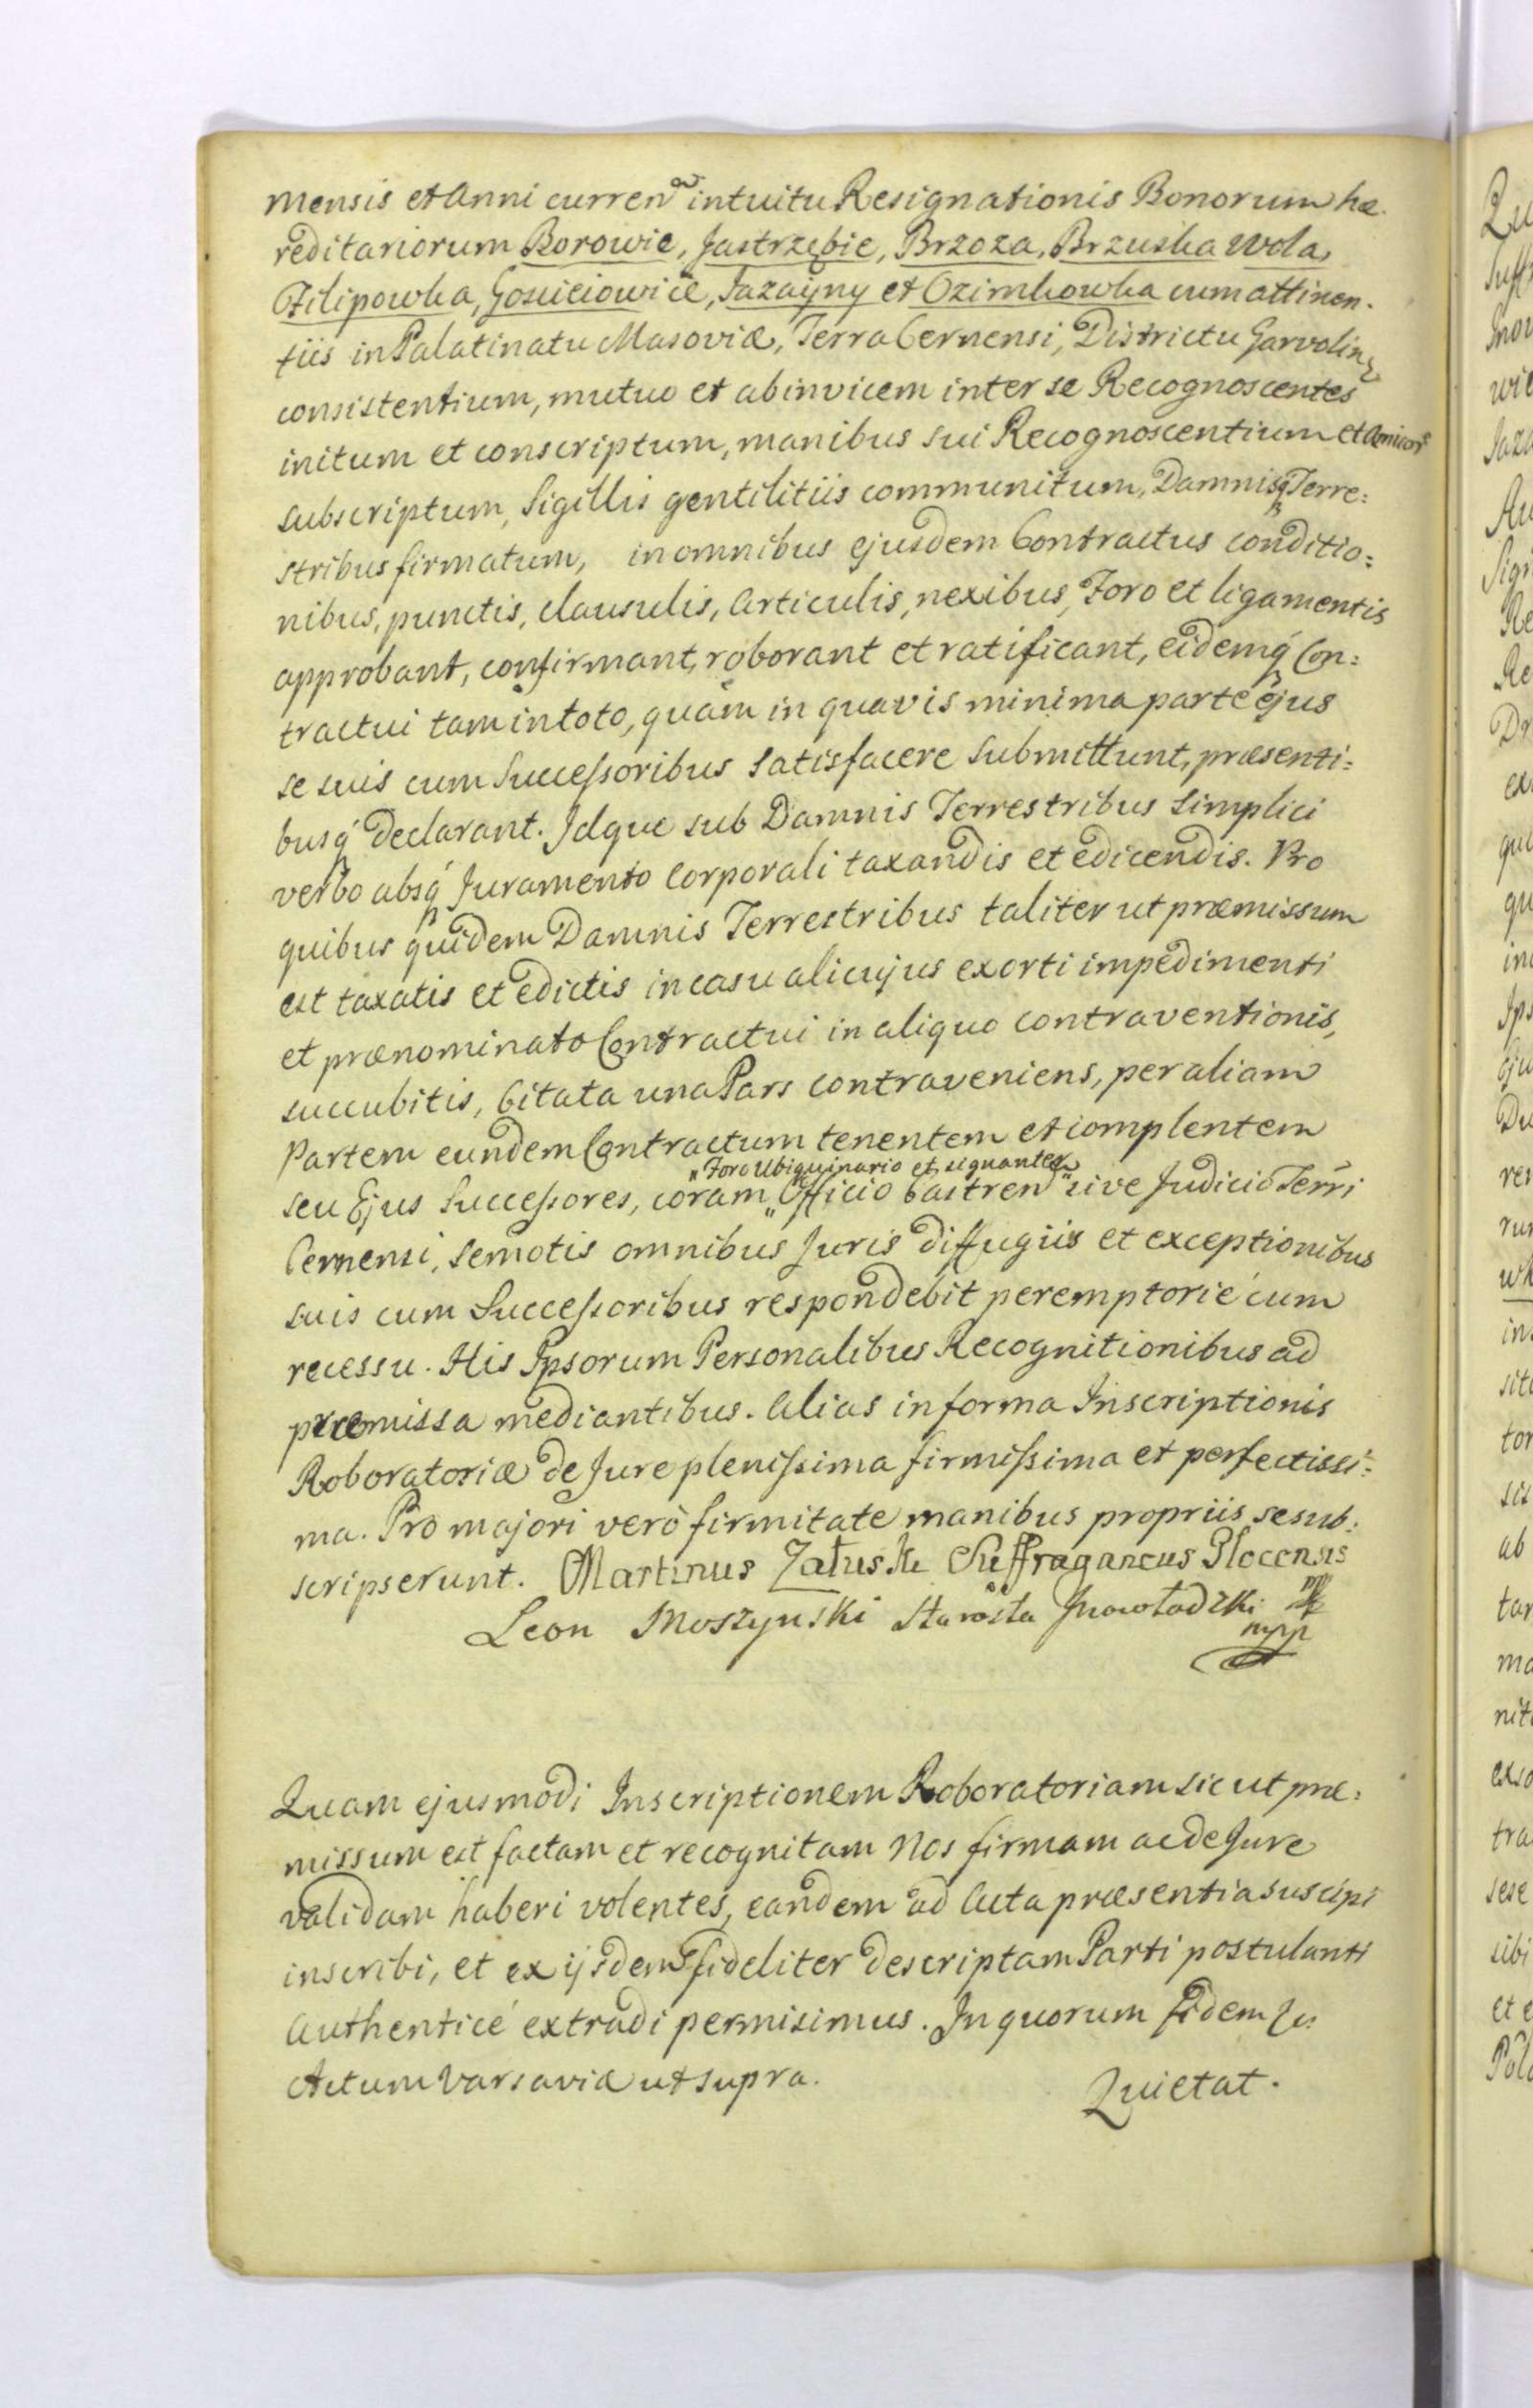 mensis et Anni curren intuitu Resignationis Bonorum hæ.
reditariorum Borowie, Jastrzębie, Brzoza, Brzuska Wola,
Filipowka, Gosciciowice, Jazayny et Ozimkowka cum attinen.
tiis in Palatinatu Masoviæ, Terra Cernensi, Districtu Garvolin
consistentium, mutuo et abinvicem inter se Recognoscentes
initum et conscriptum, manibus sui Recognoscentium et Amicor
subscriptum, Sigillis gentilitiis communitum, Damnisq Terre:
stribus firmatum, in omnibus ejusdem Contractus conditio:
nibus, punctis, clausulis, Articulis, nexibus, Foro et ligamentis
approbant, confirmant, roborant et ratificant, eidemq Con:
tractui tam in toto, quàm in quavis minima parte ejus
se suis cum Successoribus satisfacere submittunt, præsenti:
busq declarant. Idque sub Damnis Terrestribus simplici
verbo absq Juramento Corporali taxandis et edicendis. Pro
quibus quidem Damnis Terrestribus taliter ut præmissum
est taxatis et edictis in casu alicujus exorti impedimenti
et prænominato Contractui in aliquo contraventionis,
succubitis, Citata una Pars contraveniens, per aliam
Partem eundem Contractum tenentem et complentem
"Foro Ubiquinario et signanter
seu Ejus Successores, coram " Officio Castren " sive Judicio Terri
Cernensi, semotis omnibus Juris diffugiis et exceptionibus
suis cum Successoribus respondebit peremptorié cum
recessu. His Ipsorum Personalibus Recognitionibus ad
præmissa mediantibus. Alias in forma Inscriptionis
Roboratoriæ de Jure plenissima firmissima et perfectissi:
ma. Pro majori verò firmitate manibus propriis se sub:
scripserunt. Martinus Załuski Suffraganeus Plocensis
Leon Moszynski Starosta Inowłodzki mpp
Quam ejusmodi Inscriptionem Roboratoriam sic ut præ:
missum est factam et recognitam Nos firmam ac de Jure
validam haberi volentes, eandem ad Acta præsentia suscipi
inscribi, et ex ijsdem fideliter descriptam Parti postulanti
Authenticé extradi permisimus. In quorum fidem
Actum Varsaviæ ut supra. Quietat.